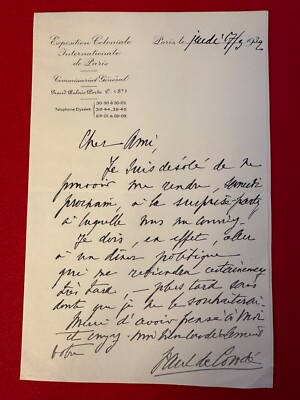 Exposition Coloniale
Internationale
de Paris
Commissariat Général
Grand Palais Porte C. (8e)
Téléphone Elysées
Paris, le jeudi
Cher Ami,
Je suis désolé de ne
pouvoir me rendre, samedi
prochain, à la surprise-party
à laquelle vous me conviez.
Je dois, en effet, aller
à un dîner politique
qui me retiendra certainement
très tard, — plus tard sans
doute que je ne le souhaiterais.
Merci d'avoir pensé à moi
et croyez - moi bien cordialement
votre
Paul de